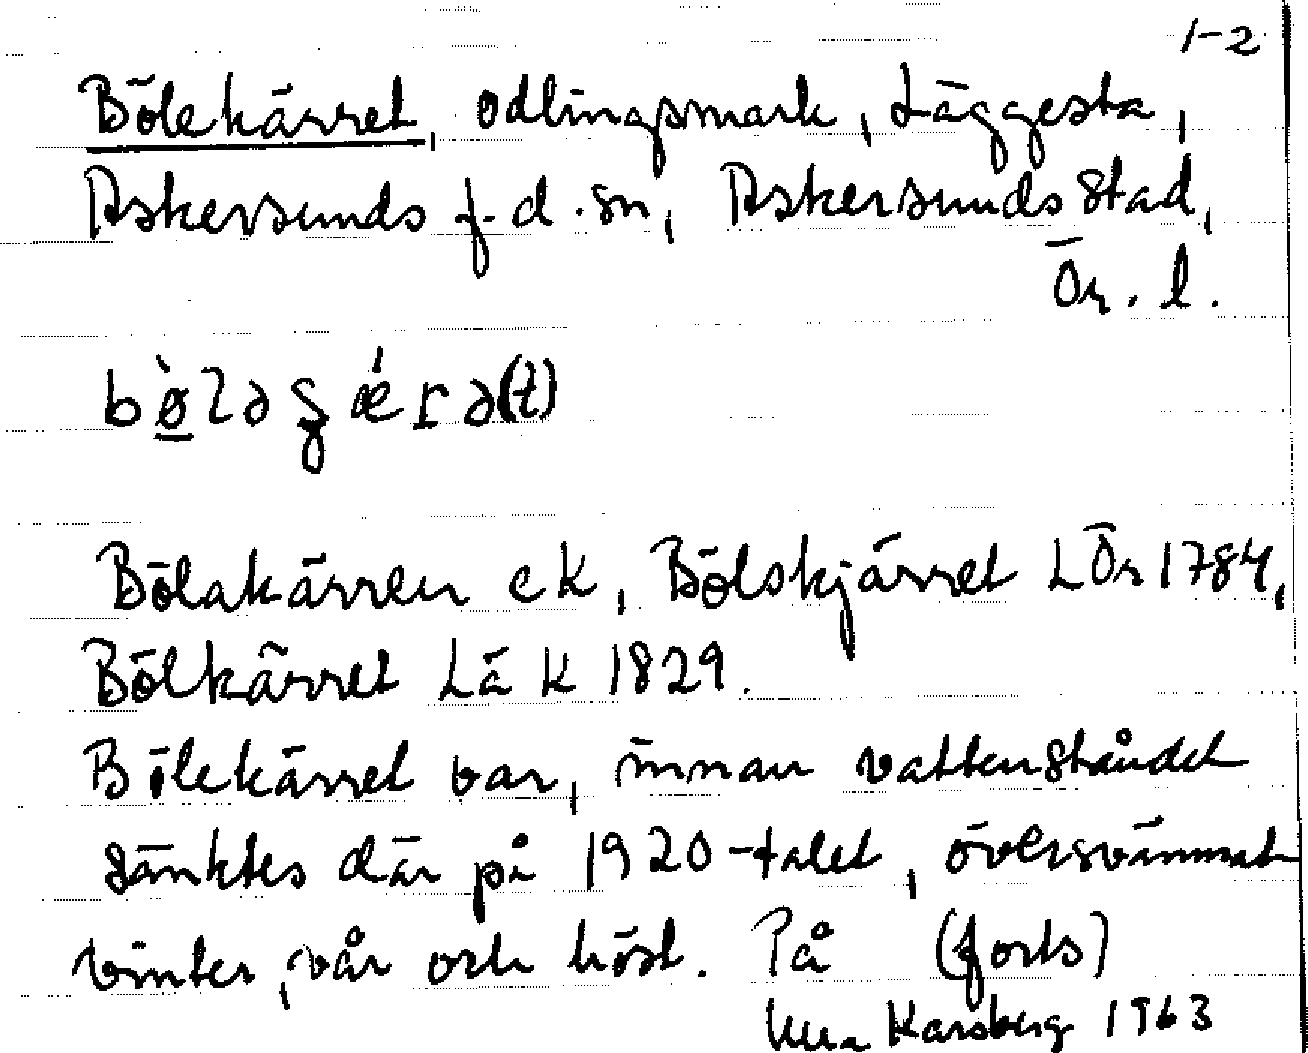 1-2
Bölekärret, odlingsmark, Läggesta,
Askersunds f.d. sn, Askersunds stad,
Ör. l.
bø̀ləʂǽrə(t)
Bölakärren eK, Bölskjärret LÖr 1784,
Bölkärret Lä K 1829.
Bölekärret var, innan vattenståndet
sänktes där på 1920-talet, översvämmat
vinter, vår och höst. På (forts)
Karsberg 1963